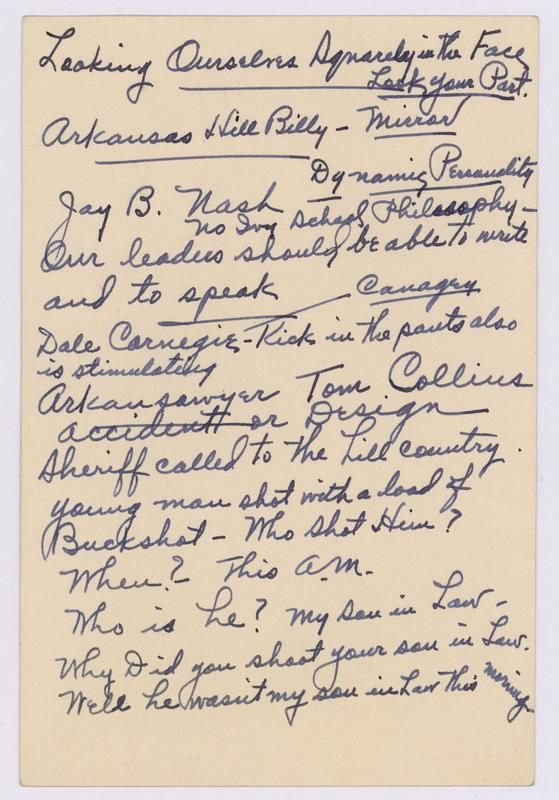 Looking Ourselves Squarely in the Face
Look Your Part.
Arkansas Hill Billy - Mirror
Dynamic Personality
Jay B. Nash
No Ivy School Philosophy -
Our leaders should be able to write
and to speak
Canagey
Dale Carnegie - Kick in the pants also
is stimulating
Arkansawyer Tom Collins
accident or Design
Sheriff called to the hill country.
young man shot with a load of
Buckshot - Who Shot Him?
When? - This A.M.
Who is he? My son in Law -
Why Did you shoot your son in Law.
Well he wasn't my son in Law this morning